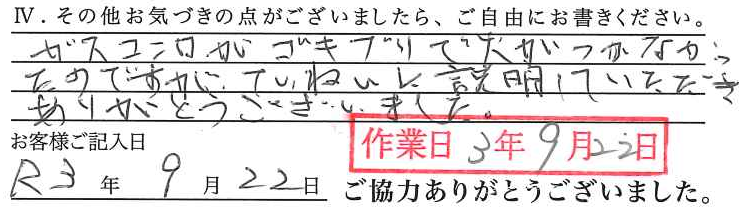 Ⅳ．その他お気づきの点がございましたら、ご自由にお書きください。
ガスコンロがゴキブリで火がつかなかっ
たのですがていねいに説明していただき
ありがとうございました。
お客様ご記入日
作業日 3年 9月22日
R3 年 9 月 22 日
ご協力ありがとうございました。